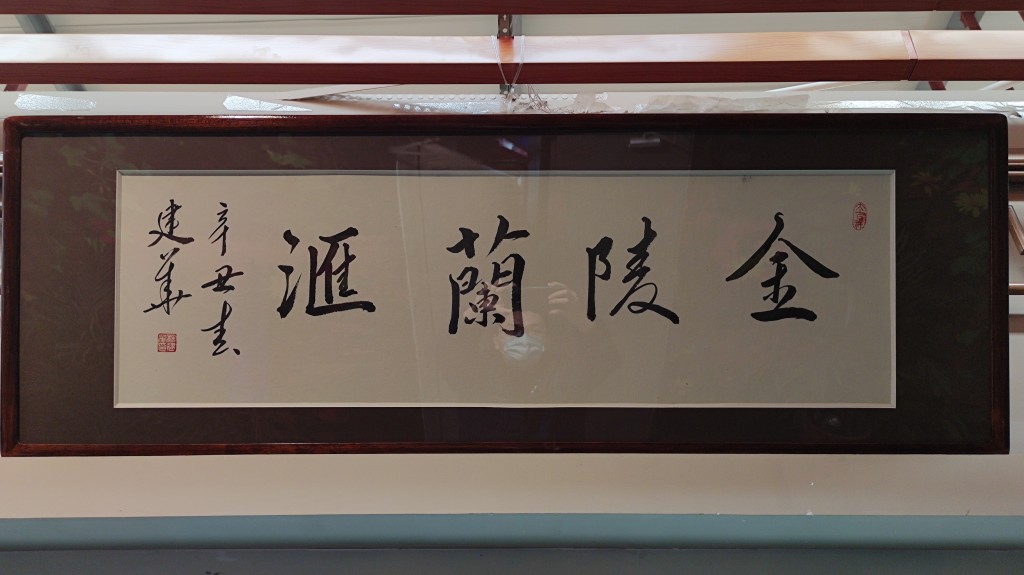 金陵蘭滙
辛丑春
建華